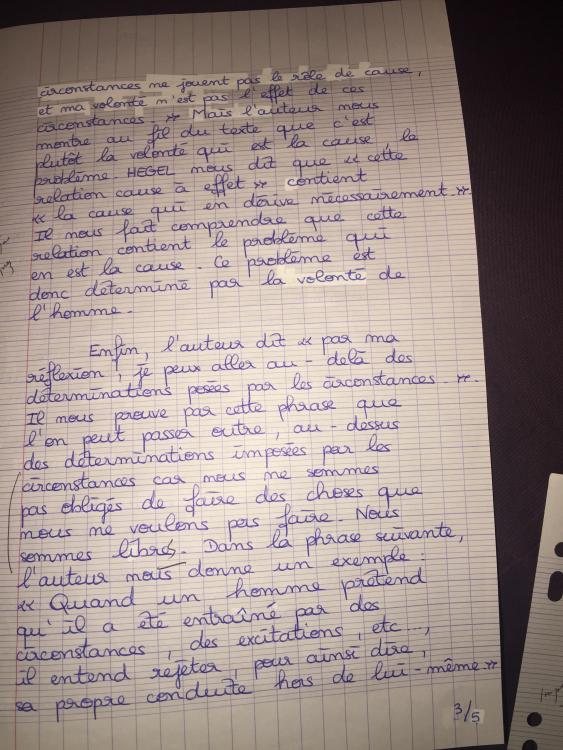 circonstances ne jouent pas le rôle de cause,
et ma volonté n'est pas l'effet de ces
circonstances. » Mais l'auteur nous
montre au fil du texte que c'est
plutôt la volonté qui est la cause, le
problème. HEGEL nous dit que « cette
relation cause à effet » contient
« la cause qui en dérive nécessairement. ».
Il nous fait comprendre que cette
relation contient le problème qui
en est la cause. Ce problème est
donc déterminé par la volonté de
l'homme.
Enfin, l'auteur dit « par ma
réflexion, je peux aller au-delà des
déterminations posées par les circonstances. ».
Il nous prouve par cette phrase que
l'on peut passer outre, au-dessus
des déterminations imposées par les
circonstances car nous ne sommes
pas obligés de faire des choses que
nous ne voulons pas faire. Nous
sommes libres. Dans la phrase suivante,
l'auteur nous donne un exemple :
« Quand un homme prétend
qu'il a été entraîné par des
circonstances, des excitations, etc...,
il entend rejeter, pour ainsi dire,
sa propre conduite hors de lui-même. »
3/5